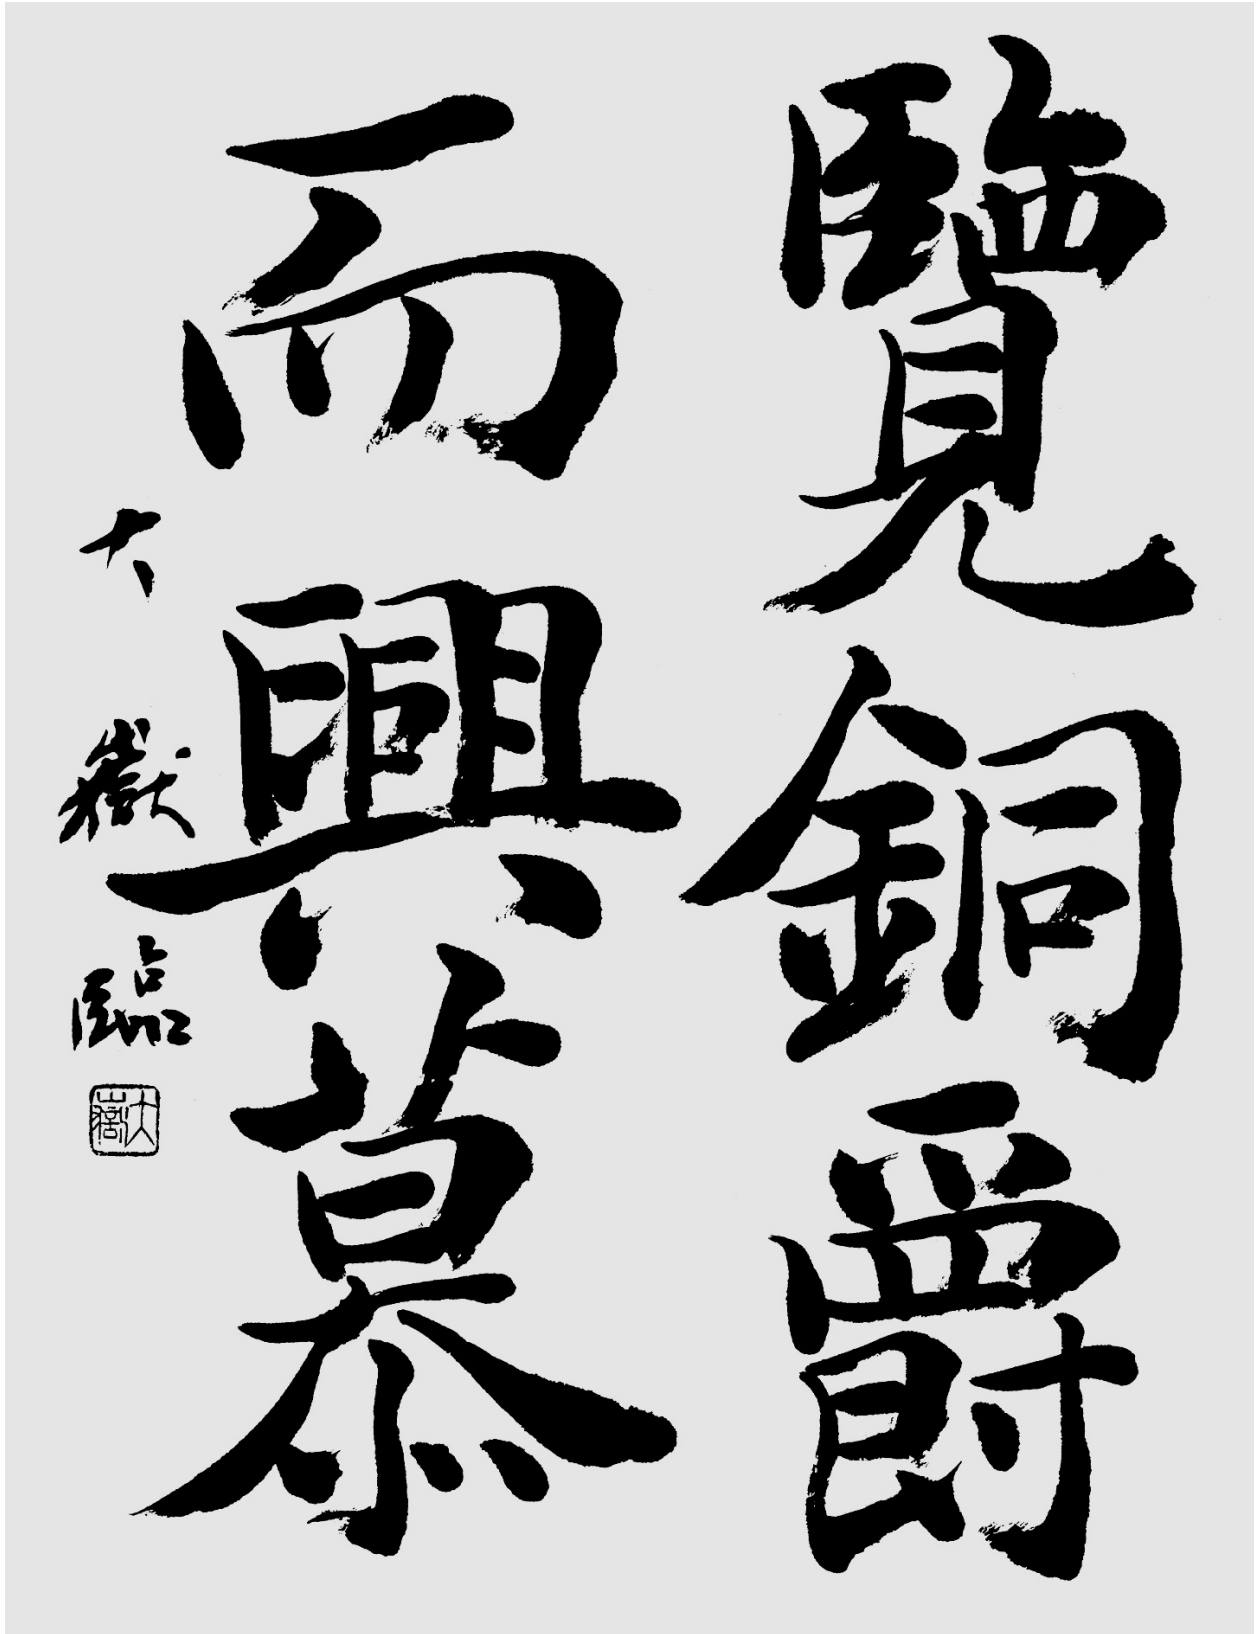 覽銅爵
而興慕
大嶽臨
大嶽